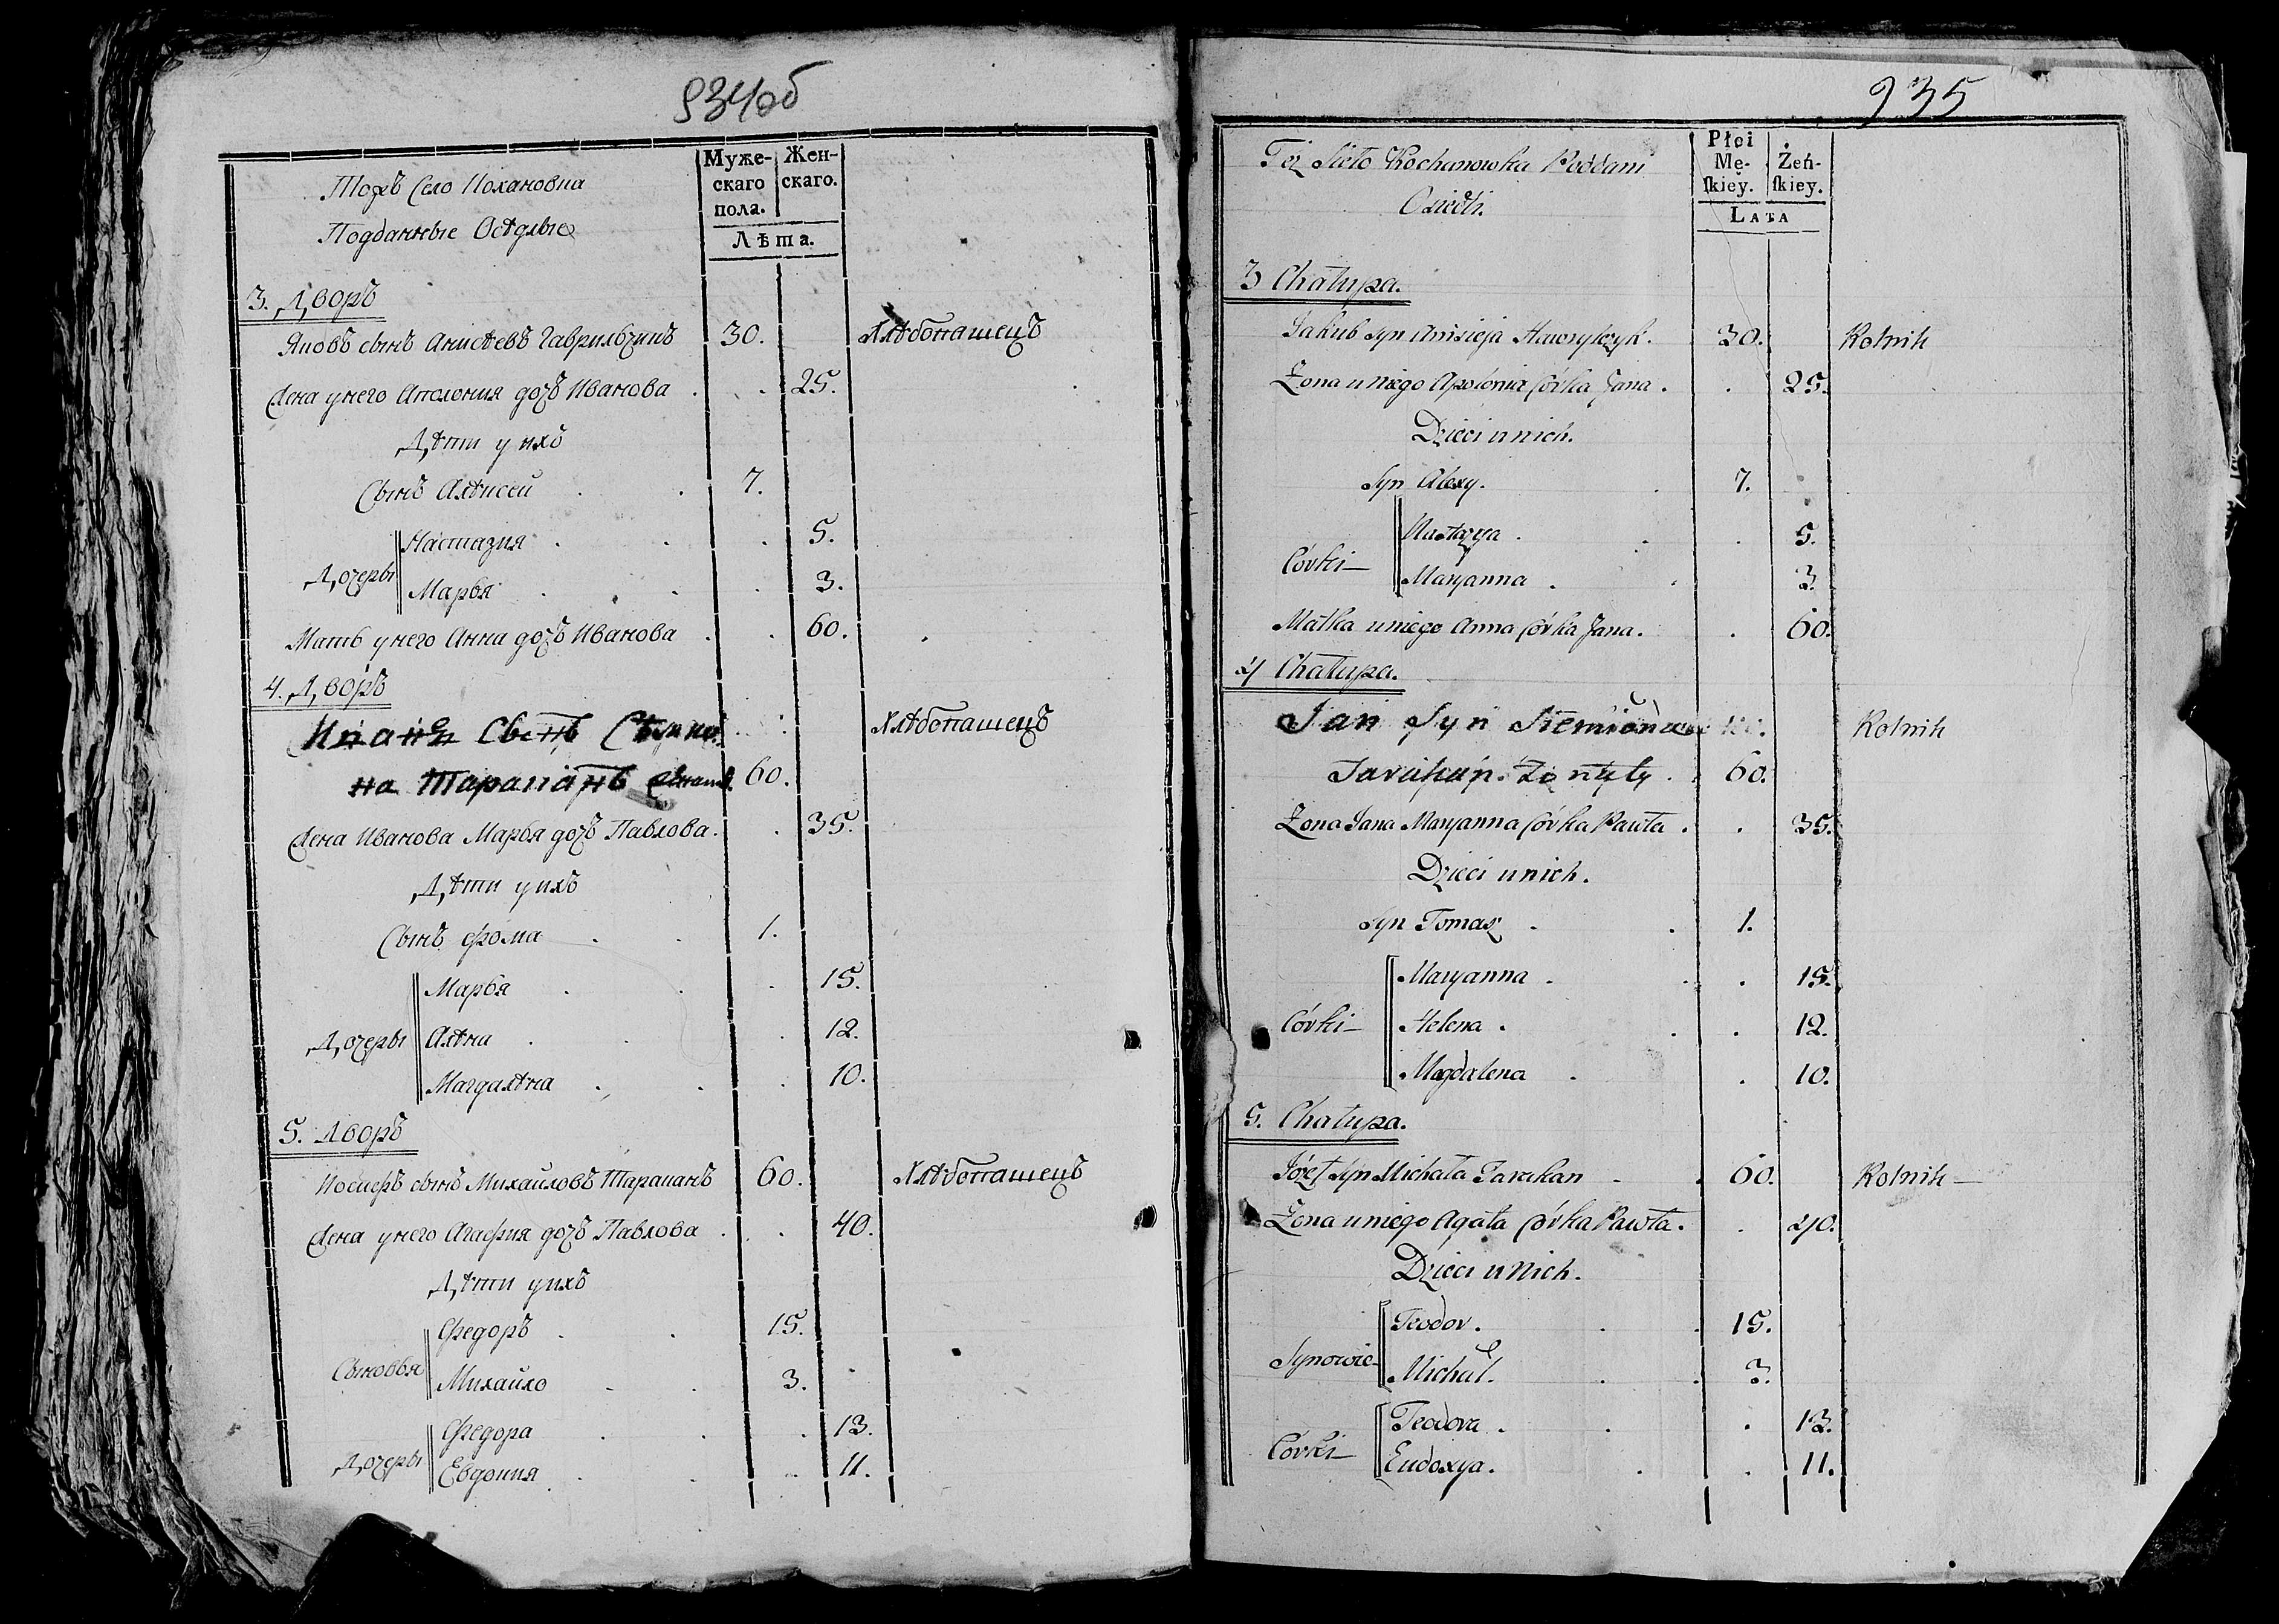 934об
Тожъ Село Кохановка
Подданные Осѣдлые
Муже-
скаго
пола.
Жен-
скаго.
Лѣта.
3. Дворъ
Яковъ сынъ Анисѣевъ Гаврильчикъ 30. Хлѣбопашецъ
Жена у него Аполония дочъ Иванова . . 25.
Дѣти у ихъ
Сынъ Алѣксей . . 7.
Дочеры Настазия . . . 5.
Марья . . . 3.
Мать у него Анна дочъ Иванова . . 60.
4. Дворъ
Иванъ Сынъ Хлѣбопашецъ
на Тараканъ 60.
Жена Иванова Марья дочъ Павлова . . 35.
Дѣти у ихъ
Сынъ Фома . . 1.
Марья . . . 15.
Дочеры Алѣна . . . 12.
Магдалѣна . . . 10.
5. Дворъ
Иосифъ сынъ Михайловъ Тараканъ 60. Хлѣбопашецъ
Жена у него Агафия дочъ Павлова . . 40.
Дѣти у ихъ
Федоръ . . 15.
Сыновья
Михайло . . 3.
Федора . . . 13.
Дочеры
Евдокия . . . 11.
935
Też Sieło Kochanowka Poddani
Osiedli.
Płci
Mę-
ſkiey.
Żeń-
ſkiey.
LATA
3 Chałupa.
Jakub syn Anisieja Hawrylczyk. 30. Rolnik
Żona u niego Apolonia Córka Jana . . 25.
Dzieci u nich.
Syn Alexy. . 7.
Nastazya . . . 5.
Córki —
Maryanna . . 3
Matka u niego Anna Córka Jana. . 60.
4 Chałupa.
Jan Syn Siemiona Rolnik
Tarakan. 60.
Żona Jana Maryanna Córka Pawła . . 35.
Dzieci u nich.
Syn Tomasz . . 1.
Maryanna . . . 15.
Córki — Helena . . . 12.
Magdalena . . 10.
5. Chałupa.
Józef Syn Michała Tarakan . . 60. Rolnik —
Żona u niego Agata Córka Pawła. . 40.
Dzieci u Nich.
Teodor . . . 15.
Synowie —
Michał. . . 3.
Teodora . . . 13.
Córki —
Eudoxya. . . 11.